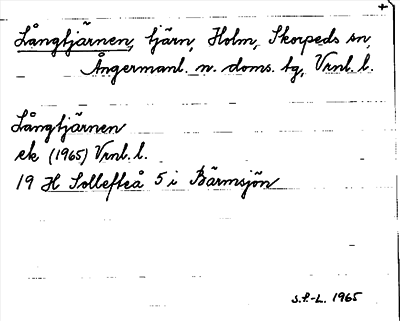 +
Långtjärnen, tjärn, Holm, Skorpeds sn,
Ångermanl. n. doms. tg, Vrnl. l.
Långtjärnen
ek (1965) Vrnl. l.
19 H Sollefteå 5 i Bärmsjön
S.F.-L. 1965